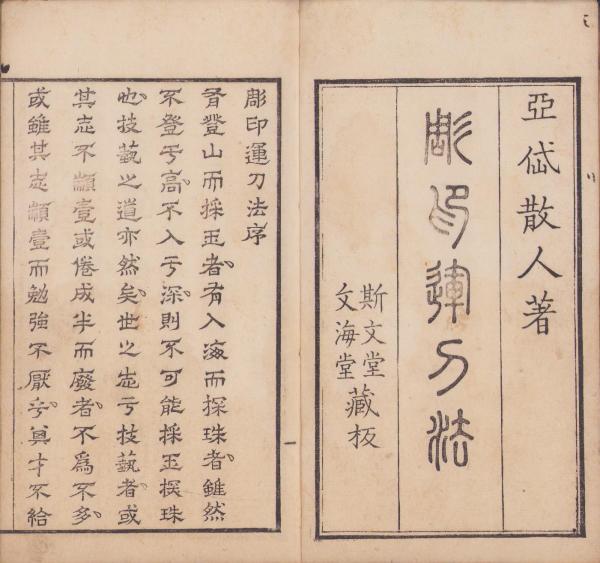 亞岱散人著
彫印運刀法
斯文堂
文海堂
藏板
彫印運刀法序
有登山而採玉者有入海而探珠者雖然
不登亏高不入亏深則不可能採玉探珠
也技藝之道亦然矣世之志亏技藝者或
其志不顓壹或倦成半而廢者不為不多
或雖其志顓壹而勉強不厭乎其才不給